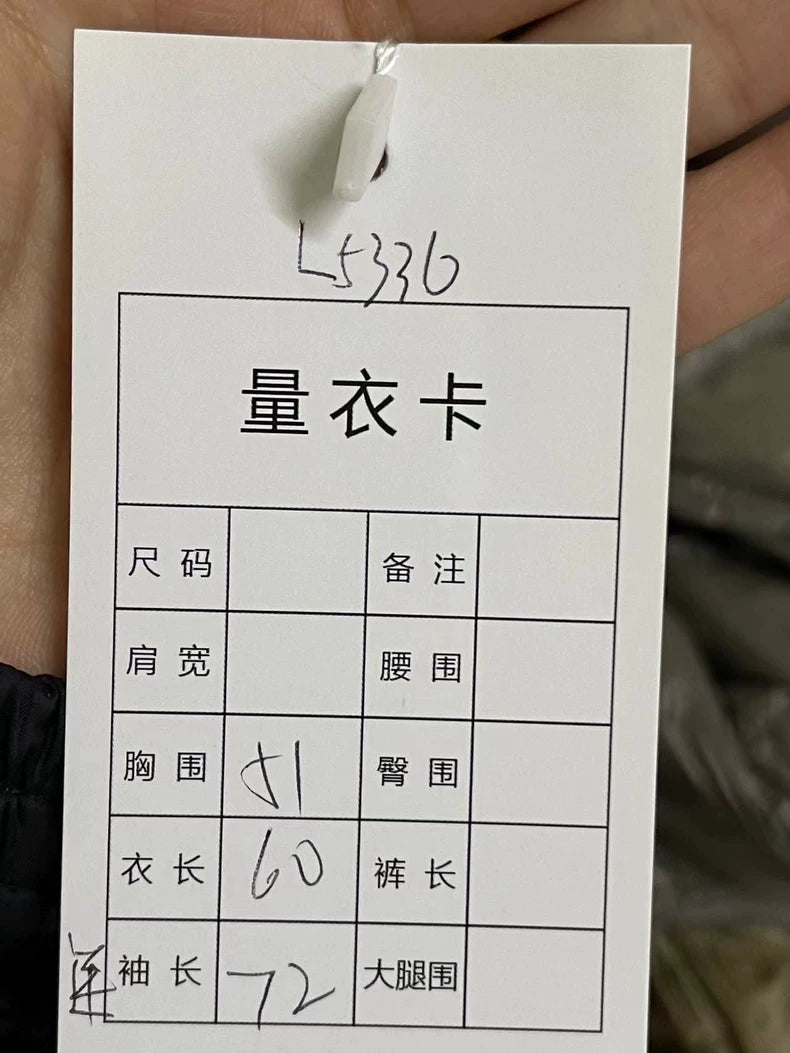 L5336
量衣卡
尺码 备注
肩宽 腰围
胸围 51 臀围
衣长 60 裤长
袖长 72 大腿围